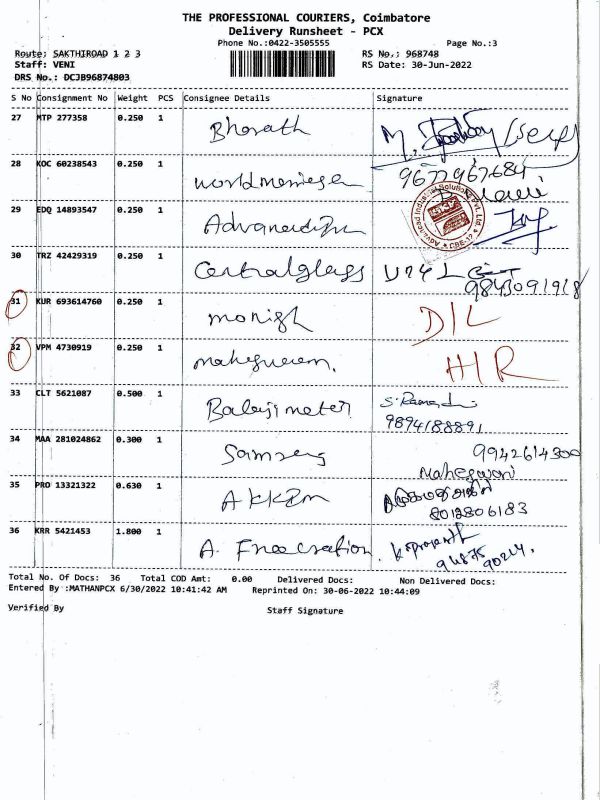 THE PROFESSIONAL COURIERS, Coimbatore
Delivery Runsheet - PCX
Phone No.:0422-3505555 Page No.:3
Route: SAKTHIROAD 1 2 3 RS No.: 968748
Staff: VENI RS Date: 30-Jun-2022
DRS No.: DCJB96874803
S No Consignment No Weight PCS Consignee Details Signature
27 MTP 277358 0.250 1 Bharath
28 KOC 60238543 0.250 1 9677967684
29 EDQ 14893547 0.250 1
30 TRZ 42429319 0.250 1 Centralglass
9843091918
31 KUR 693614760 0.250 1 monish D/L
32 VPM 4730919 0.250 1 H/R
33 CLT 5621087 0.500 1 Balaji meter
9894188891
34 MAA 281024862 0.300 1 Samsung 9942614300
Maheswari
35 PRO 13321322 0.630 1 AKKRM
8012806183
36 KRR 5421453 1.800 1 A.
94875
90214.
Total No. Of Docs: 36 Total COD Amt: 0.00 Delivered Docs: Non Delivered Docs:
Entered By :MATHANPCX 6/30/2022 10:41:42 AM Reprinted On: 30-06-2022 10:44:09
Verified By Staff Signature